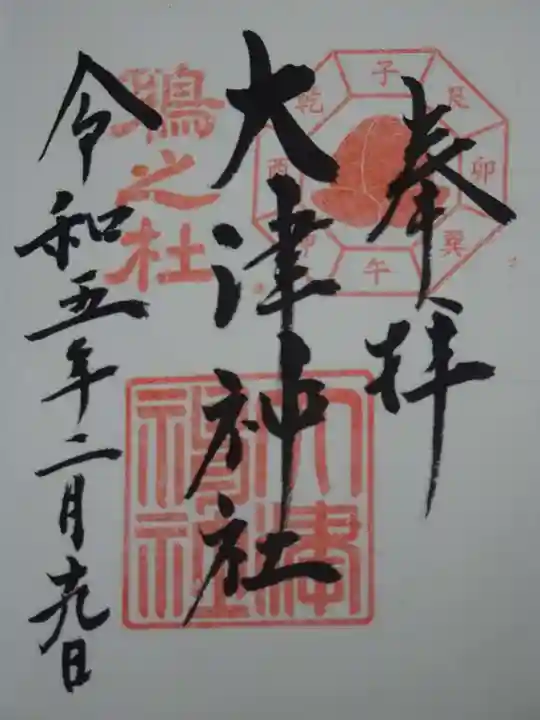 奉拝
子
艮
卯
巽
午
酉
乾
大津神社
大津
神社
鵲之社
令和五年二月十九日